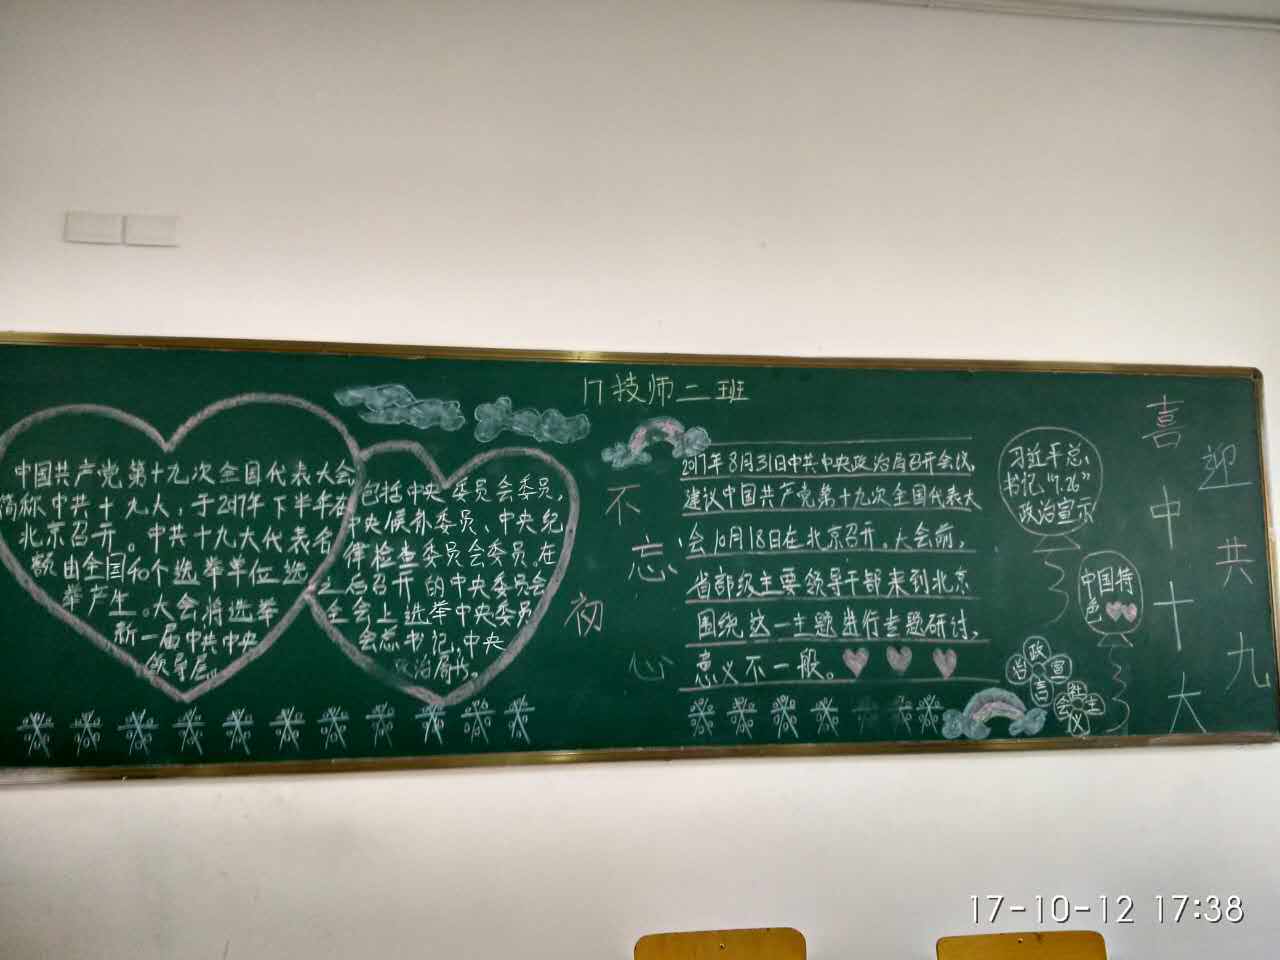 17技师二班
中国共产党第十九次全国代表大会
简称中共十九大,于2017年下半年在
北京召开。中共十九大代表名
额由全国40个选举单位选
举产生。大会将选举
新一届中共中央
领导层。
包括中央委员会委员,
中央候补委员、中央纪
律检查委员会委员。在
之后召开的中央委员会
全会上选举中央委员
会总书记,中央
政治局
不忘初心
2017年8月31日中共中央政治局召开会议,
建议中国共产党第十九次全国代表大
会10月18日在北京召开。大会前,
省部级主要领导干部来到北京
围绕这一主题进行专题研讨,
意义不一般。
习近平总
书记"7.26"
政治宣示
中国特
色
政
治
宣
言
社
会
主
义
喜迎中共十九大
17-10-12 17:38